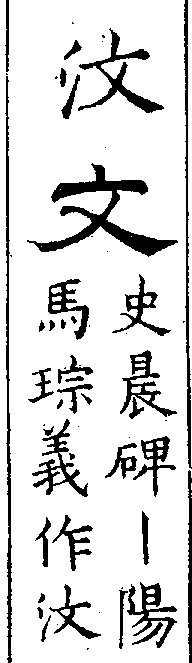 汶文
史晨碑丨陽
馬琮義作汶